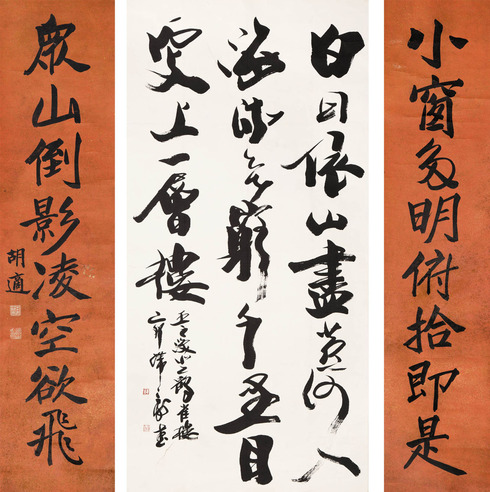 小窗多明俯拾即是
白日依山盡黄河入
海流欲窮千里目
更上一層樓
鸛雀樓
眾山倒影凌空欲飛
胡適